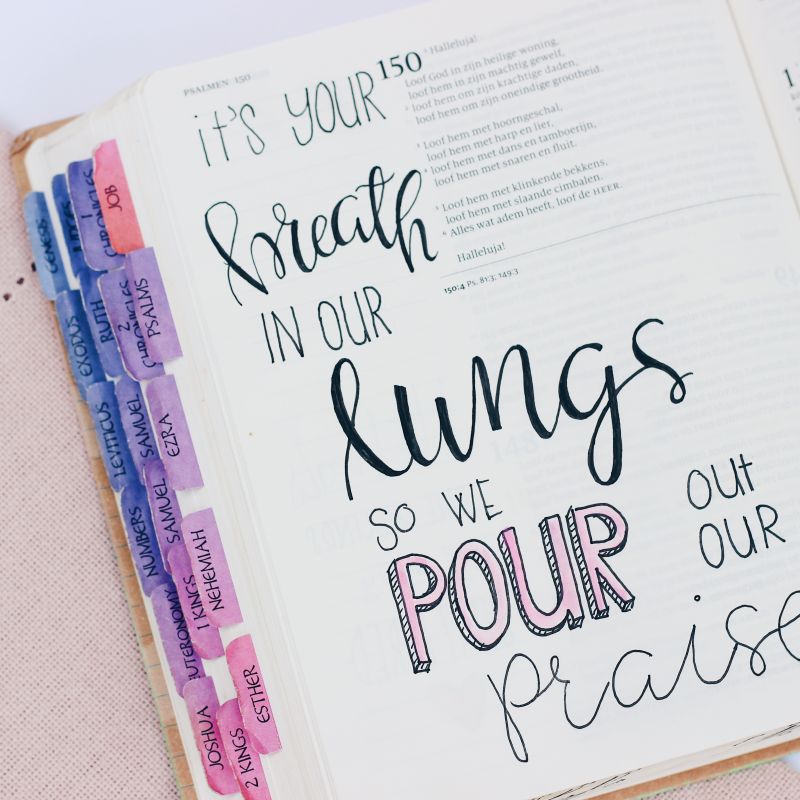 PSALMEN 150
150
¹ Halleluja!
Loof God in zijn heilige woning,
loof hem in zijn machtig gewelf,
² loof hem om zijn krachtige daden,
loof hem om zijn oneindige grootheid.
³ Loof hem met hoorngeschal,
loof hem met harp en lier,
⁴ loof hem met dans en tamboerijn,
loof hem met snaren en fluit.
⁵ Loof hem met klinkende bekkens,
loof hem met slaande cimbalen.
⁶ Alles wat adem heeft, loof de HEER.
Halleluja!
150:4 Ps. 81:3; 149:3
it's YOUR
breath
IN OUR
lungs
SO WE
POUR
OUt
OUR
praise
GENESIS
1 CHRONICLES
JOB
EXODUS
RUTH
2 CHRONICLES
PSALMS
LEVITICUS
SAMUEL
EZRA
NUMBERS
SAMUEL
NEHEMIAH
1 KINGS
UTERONOMY
ESTHER
JOSHUA
2 KINGS